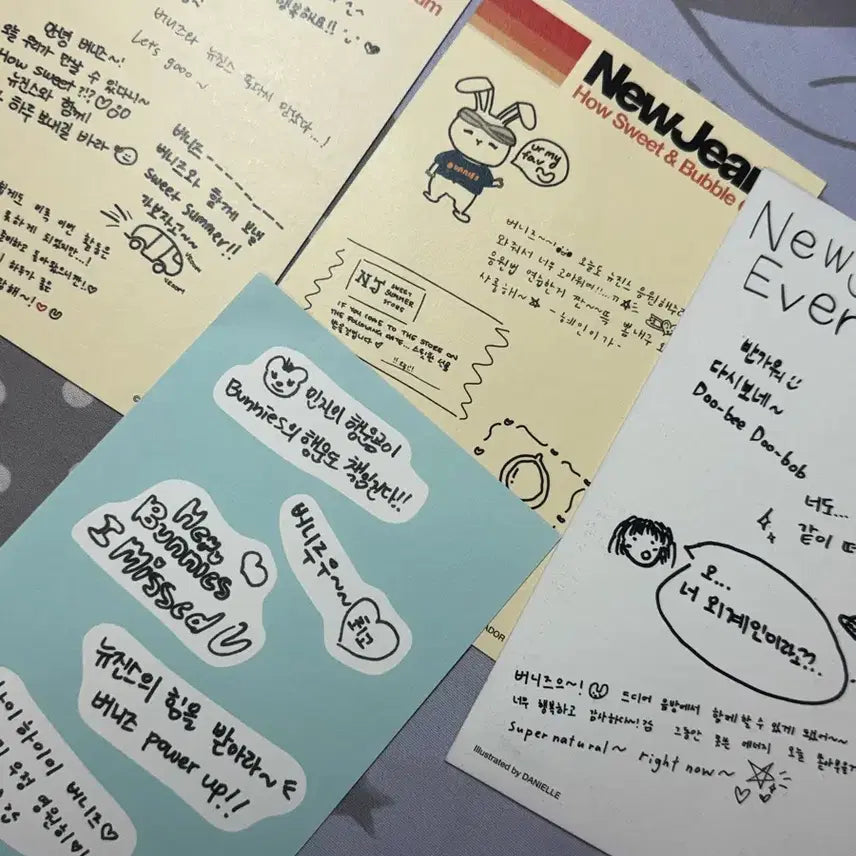 행복해요!!
안녕 버니즈~!
오늘 우리가 만날 수 있다니~
How sweet ?!?
뉴진스와 함께!
하루 보내길 바라
버니즈와 뉴진스
Let's gooo ~
버니즈
버니즈와 함께 보낼
Sweet summer!!
가보자고~~
NewJea
How Sweet & Bubble
ur my
fav~
BUNNIES
버니즈~~! 오늘도 뉴진스 응원해주러
와줘서 너무 고마워어!!
응원법 연습한거 짠~~뜩 뽐내구
사릉해~
- 혜인이가 -
NJ SWEET
SUMMER
STORE
IF YOU COME TO THE STORE ON
THE FOLLOWING DATE...
받을것입니다
민진의 행운곰이
Bunnies의 행운도 책임진다!!
Hey,
BUNNIES
I Missed U
버니즈우~~
최고
뉴진스의 힘을 받아라~
버니즈 power up!!
하이하이이 버니즈
우정 영원히
New
Ever
반가워
다시보네~
Doo-bee Doo-bob
너도...
같이
오...
너 외계인이라고??
버니즈으~! 드디어 음방에서 함께 할 수 있게 됐어~~
너무 행복하고 감사하다~!
그동안 못쓴 에너지 오늘
Super natural~ right now~
Illustrated by DANIELLE